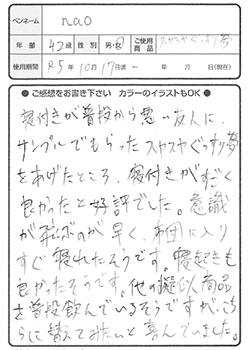 ペンネーム nao
年齢 42歳 性別 男・女 ご使用商品 スヤスヤぐっすり夢
使用期間 R5年10月17日頃 ~ 年 月 日(現在)
●ご感想をお書き下さい カラーのイラストもOK●
寝付きが普段から悪い友人に、
サンプルでもらったスヤスヤぐっすり夢
をあげたところ、寝付きがすごく
良かったと好評でした。意識
が飛ぶのが早く、布団に入り
すぐ寝れたそうです。寝起きも
良かったそうです。他の類似商品
を普段飲んでいるそうですが、こち
らに替えてみたいと喜んでいました。